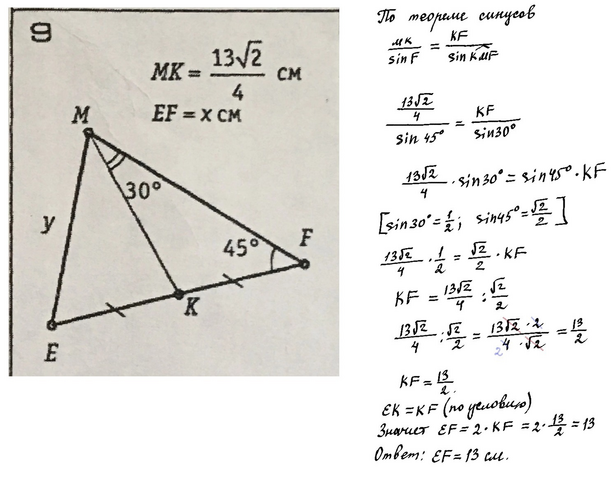 9
MK = 13√2/4 см
EF = x см
M
30°
y
45°
F
K
E
По теореме синусов
мк/sinF = KF/sinKMF
13√2/4/sin 45° = KF/sin30°
13√2/4 · sin30° = sin45° · KF
[sin30° = 1/2; sin45° = √2/2]
13√2/4 · 1/2 = √2/2 · KF
KF = 13√2/4 : √2/2
13√2/4 : √2/2 = 13√2 · 2/4 · √2 = 13/2
2
KF = 13/2.
EK = KF (по условию)
Значит EF = 2 · KF = 2 · 13/2 = 13
Ответ: EF = 13 см.